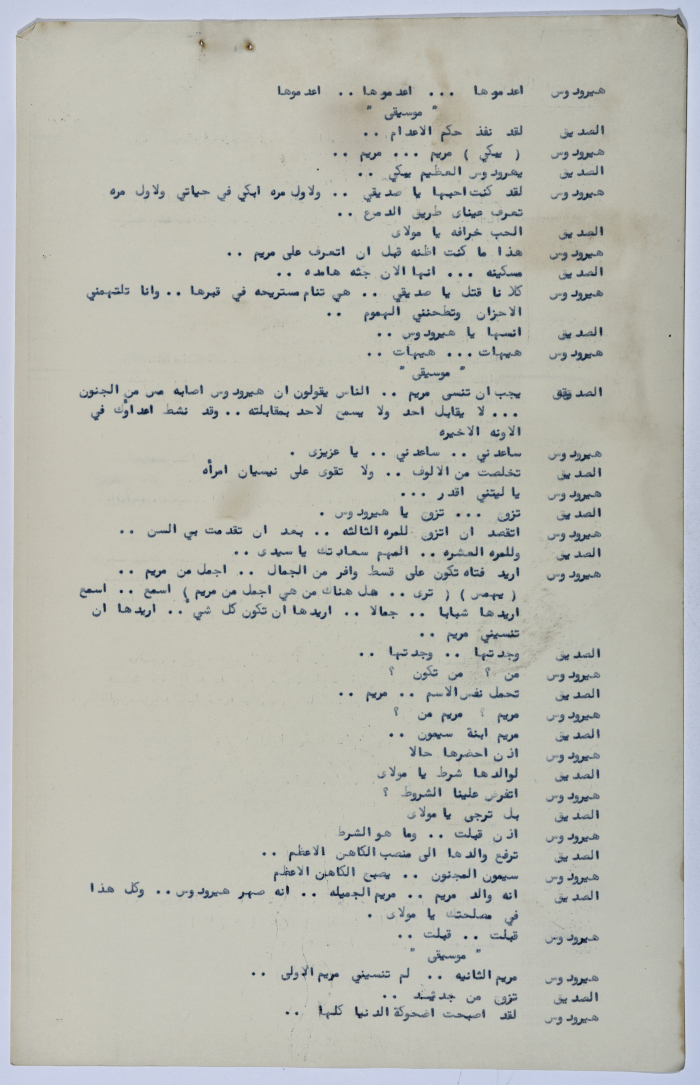 هيرودوس اعدموها ... اعدموها .. اعدموها
" موسيقى "
الصديق لقد نفذ حكم الاعدام ..
هيرودوس ( يبكي ) مريم ... مريم ..
الصديق يهرودوس العظيم يبكي ..
هيرودوس لقد كنت احبها يا صديقي .. ولاول مره ابكي في حياتي ولاول مره
تعرف عيناى طريق الدموع ..
الصديق الحب خرافه يا مولاى
هيرودوس هذا ما كنت اظنه قبل ان اتعرف على مريم ..
الصديق مسكينه ... انها الان جثه هامده ..
هيرودوس كلانا قتل يا صديقي .. هي تنام مستريحه في قبرها .. وانا تلتهمني
الاحزان وتطحنني الهموم ..
الصديق انسها يا هيرودوس ..
هيرودوس هيهات ... هيهات ..
" موسيقى "
الصديق يجب ان تنسى مريم .. الناس يقولون ان هيرودوس اصابه مس من الجنون
... لا يقابل احد ولا يسمح لاحد بمقابلته .. وقد نشط اعداؤك في
الاونه الاخيره
هيرودوس ساعدني .. ساعدني .. يا عزيزى .
الصديق تخلصت من الالوف .. ولا تقوى على نيسيان امرأه
هيرودوس يا ليتني اقدر ...
الصديق تزوج ... تزوج يا هيرودوس .
هيرودوس اتقصد ان اتزوج للمره الثالثه .. بعد ان تقدمت بي السن ..
الصديق وللمره العشره .. المهم سعادتك يا سيدى ..
هيرودوس اريد فتاه تكون على قسط وافر من الجمال .. اجمل من مريم ..
( يهمس ) ( ترى .. هل هناك من هي اجمل من مريم ) اسمع .. اسمع
اريدها شبابا .. جمالا .. اريدها ان تكون كل شيء .. اريدها ان
تنسيني مريم ..
الصديق وجدتها .. وجدتها ..
هيرودوس من ؟ من تكون ؟
الصديق تحمل نفس الاسم .. مريم ..
هيرودوس مريم ؟ مريم من ؟
الصديق مريم ابنة سيمون ..
هيرودوس اذن احضرها حالا
الصديق لوالدها شرط يا مولاى
هيرودوس اتفرض علينا الشروط ؟
الصديق بل ترجى يا مولاى
هيرودوس اذن قبلت .. وما هو الشرط
الصديق ترفع والدها الى منصب الكاهن الاعظم ..
هيرودوس سيمون المجنون .. يصبح الكاهن الاعظم
الصديق انه والد مريم .. مريم الجميله .. انه صهر هيرودوس .. وكل هذا
في مصلحتك يا مولاى .
هيرودوس قبلت .. قبلت ..
" موسيقى "
هيرودوس مريم الثانيه .. لم تنسيني مريم الاولى ..
الصديق تزوج من جديد ..
هيرودوس لقد اصبحت اضحوكة الدنيا كلها ..